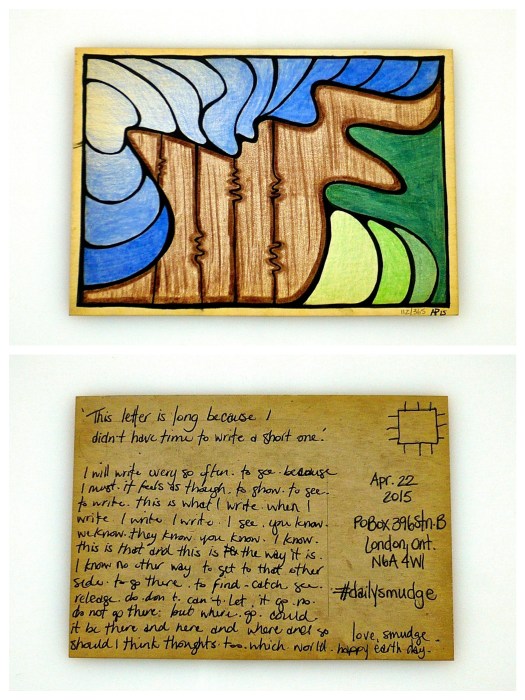 112/365 AP 15
'This letter is long because I
didn't have time to write a short one.'
I will write every so often. to see. because
I must. it feels as though. to show. to see.
to write. this is what I write when I
write. I write. I write. I see. you know.
we know. they know you know. I know.
this is that and this is the way it is.
I know no other way to get to that other
side. to go there. to find - catch see.
release. do. don't. can't. let. it go. no.
do not go there. but where. go. could
it be there and here. and where and so
should I think thoughts too. which world.
Apr. 22
2015
PoBox 396 Stn. B
London, Ont.
N6A 4W1
#dailysmudge
love, smudge -
happy earth day -